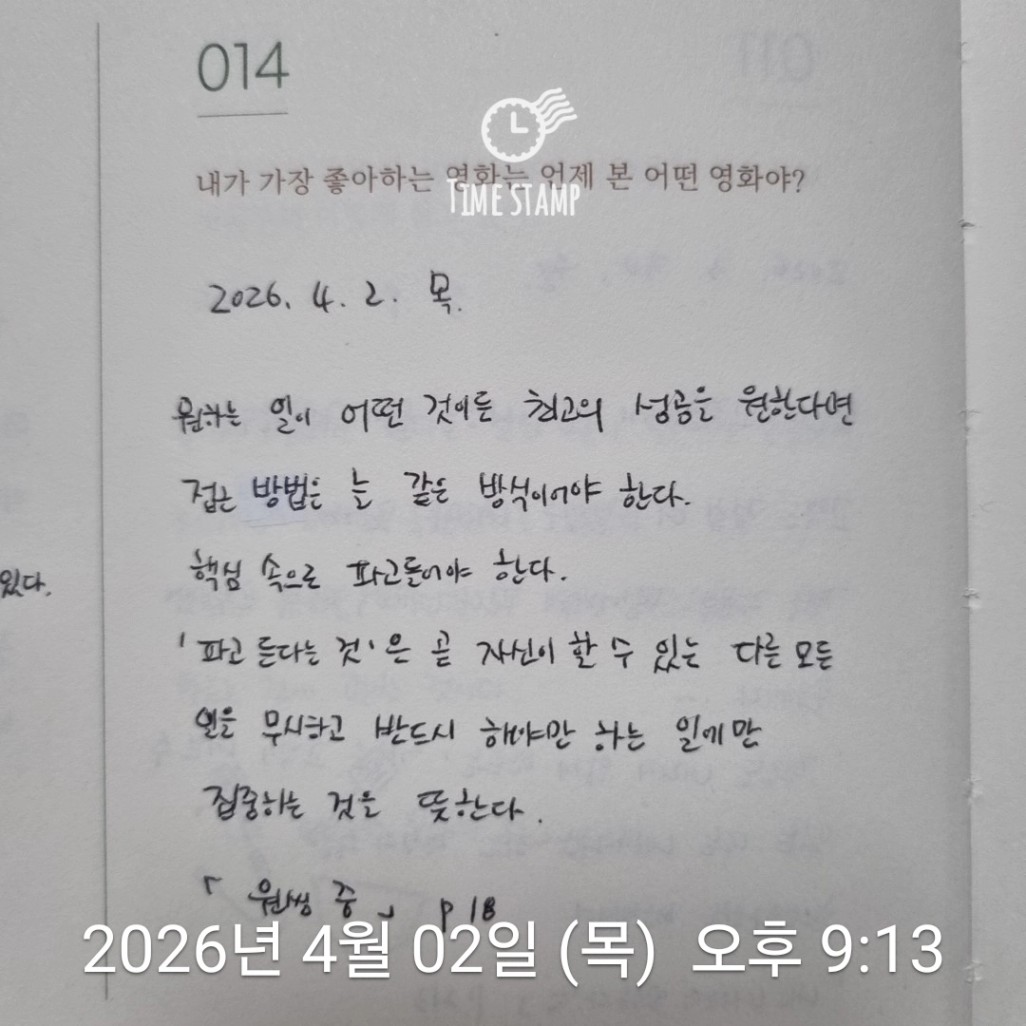 014
내가 가장 좋아하는 영화는 언제 본 어떤 영화야?
TIME STAMP
2026. 4. 2. 목.
원하는 일이 어떤 것이든 최고의 성공을 원한다면
접는 방법은 늘 같은 방식이어야 한다.
핵심 속으로 파고들어야 한다.
있다.
'파고 든다는 것'은 곧 자신이 할 수 있는 다른 모든
일을 무시하고 반드시 해야만 하는 일에만
집중하는 것을 뜻한다.
「 원씽 중 」 p 18
2026년 4월 02일 (목) 오후 9:13